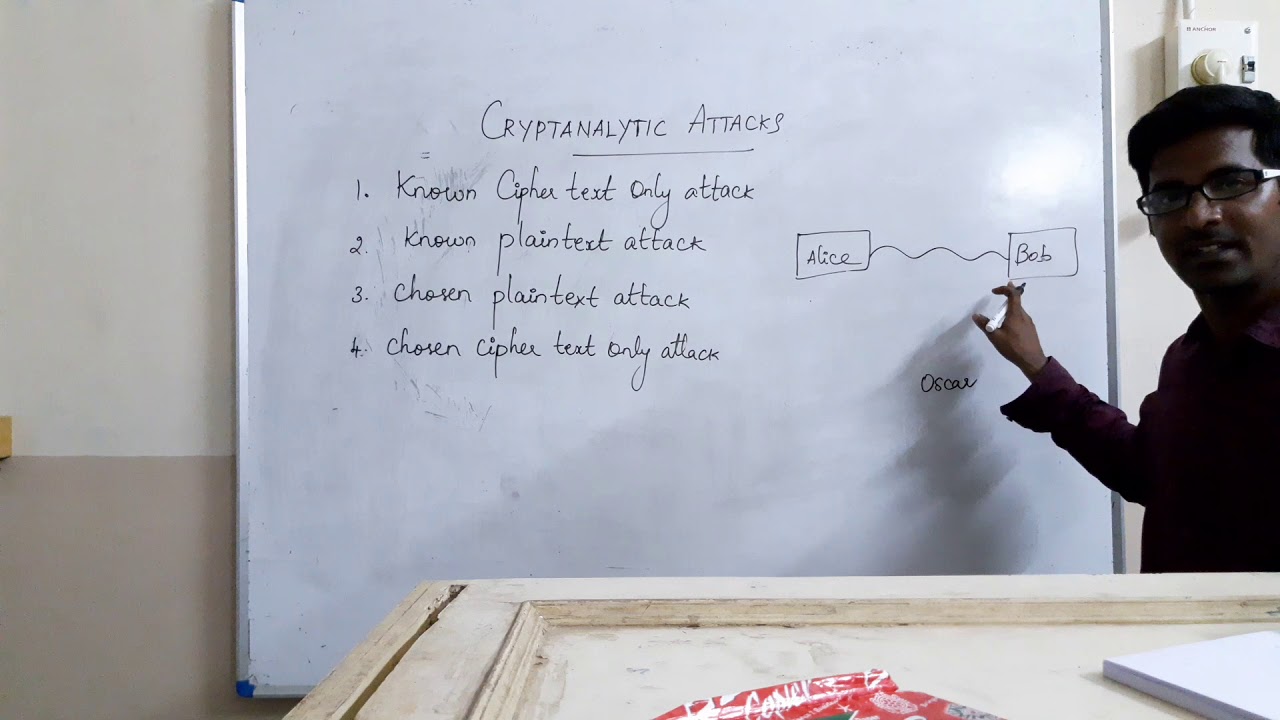 CRYPTANALYTIC ATTACKS
1. Known Cipher text Only attack
2. Known plaintext attack
3. Chosen plaintext attack
4. Chosen cipher text Only attack
Alice
Bob
Oscar
ANCHOR